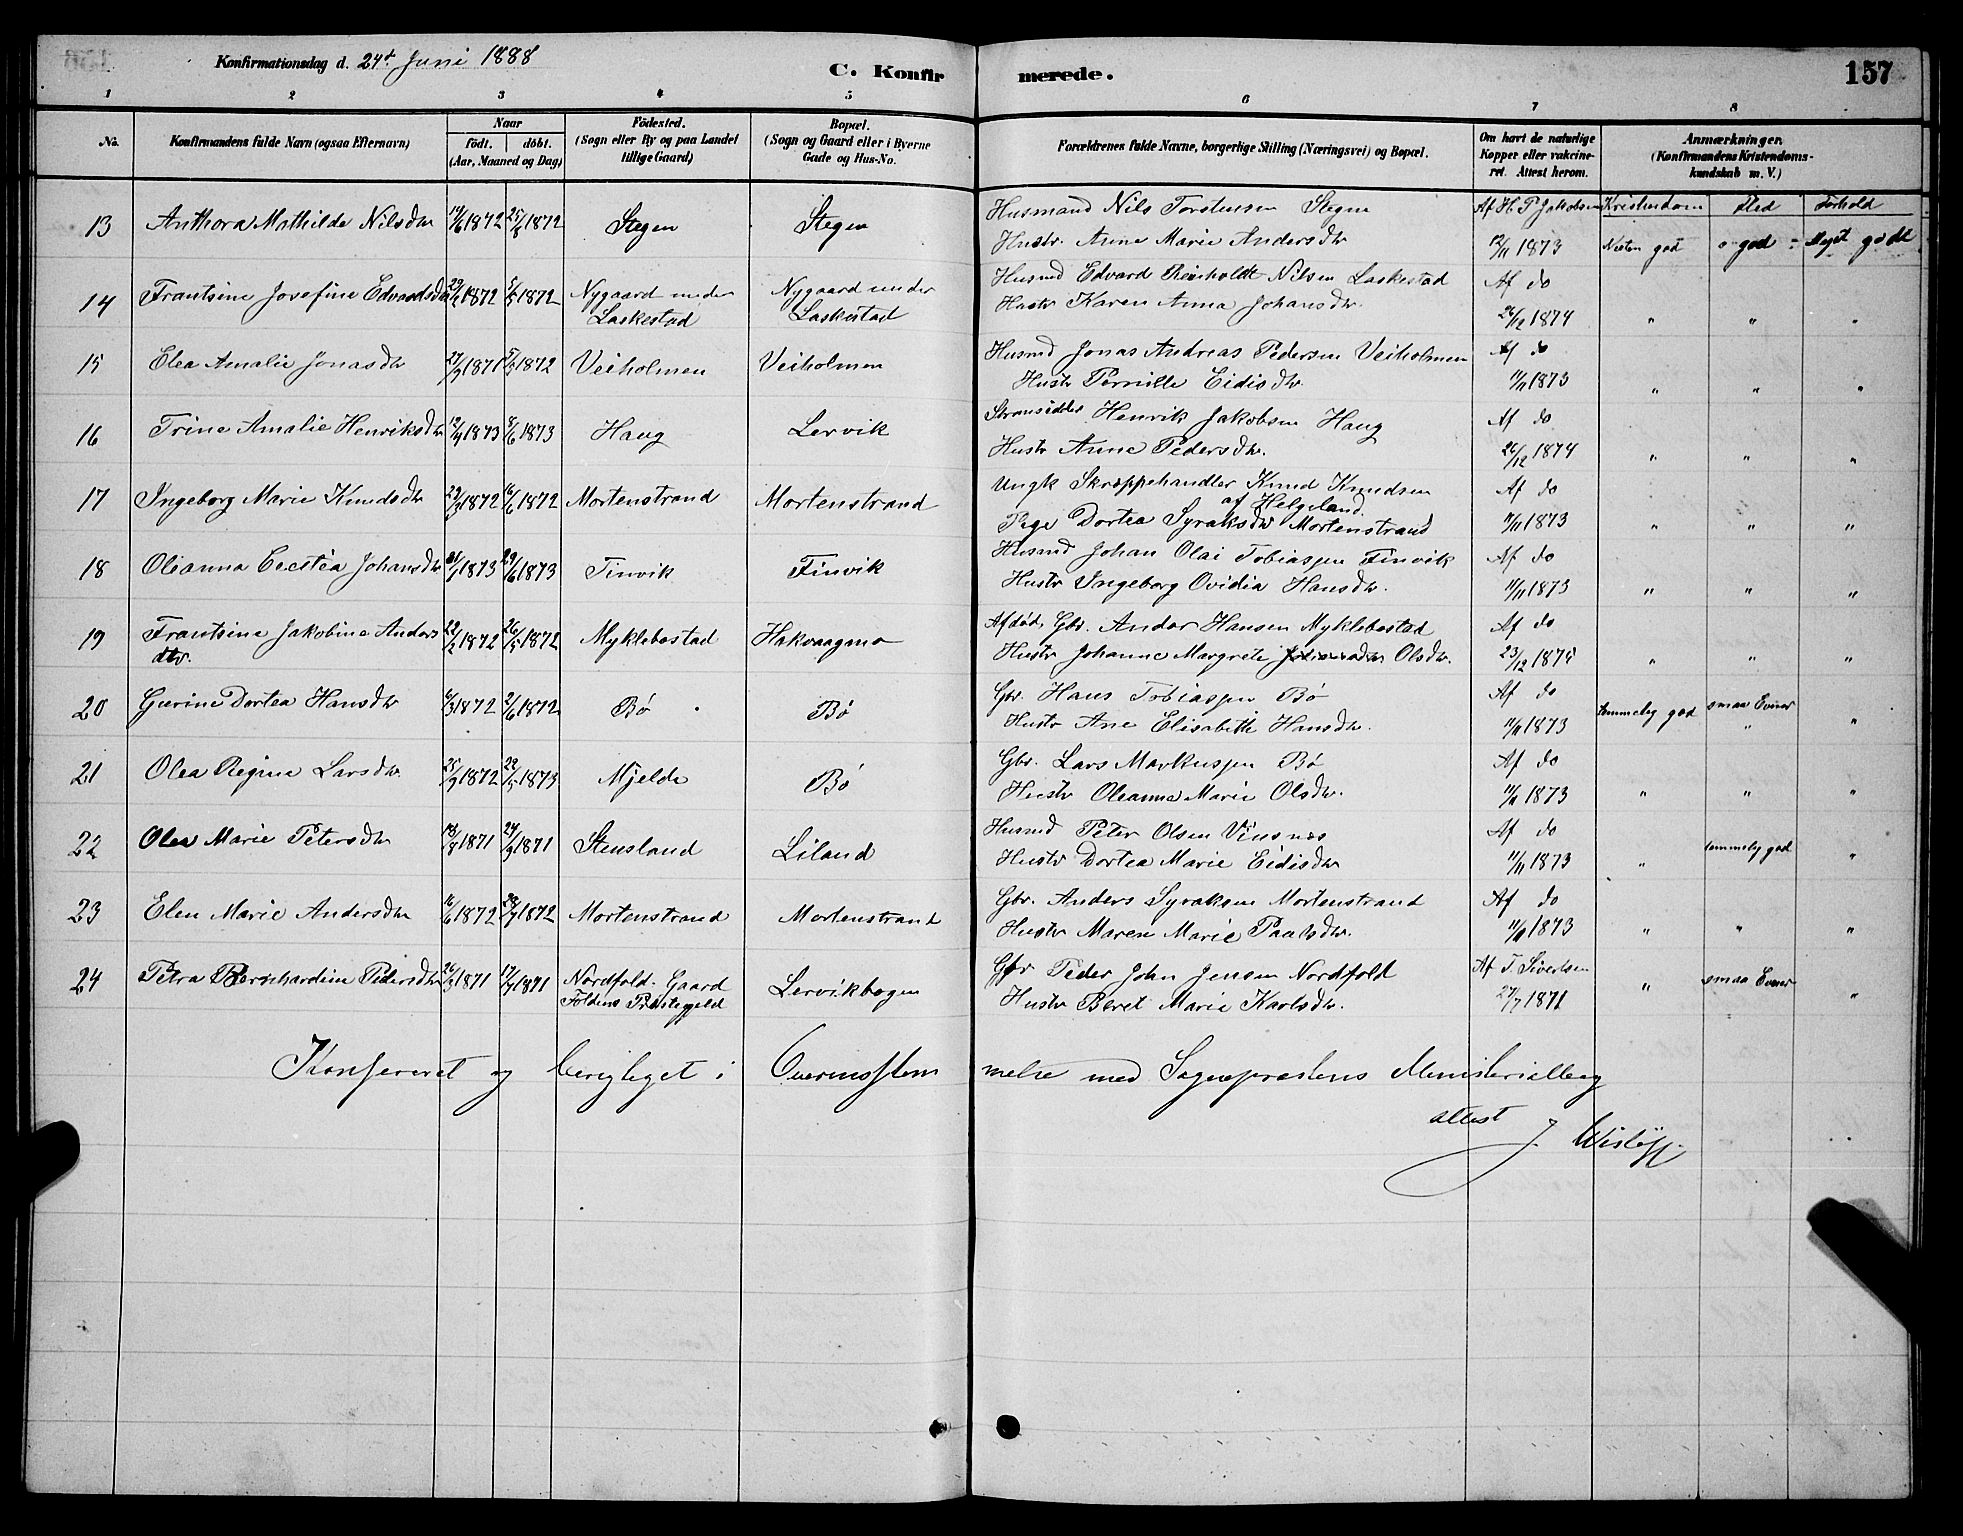 Konfirmationsdag d. 24de Juni 1888
C. Konfirmerede.
157
1 2 3 4 5 6 7 8
No. Konfirmandens fulde Navn (ogsaa Efternavn) Naar født. døbt. (Aar, Maaned og Dag) Fødested. (Sogn eller By og paa Landet tillige Gaard) Bopæl. (Sogn og Gaard eller i Byerne Gade og Hus-No. Forældrenes fulde Navne, borgerlige Stilling (Næringsvei) og Bopæl. Om havt de naturlige Kopper eller vakcineret. Attest herom. Anmærkninger. (Konfirmandens Kristendomskundskab m. V.)
13 Anthora Mathilde Nilsdtr 19/6 1872 25/8 1872 Stegen Stegen Husmand Nils Torstensen Stegen Af H. P. Jakobsen Kristendom Flid Forhold
Hustr. Anne Marie Andersdtr 12/11 1873 Næsten god god Meget godt
14 Frantsine Josefine Edvardsdtr 29/2 1872 5/5 1872 Nygaard under Laskestad Nygaard under Laskestad Husmd Edvard Reinholdt Nilsen Laskestad Af do
Hustr Karen Anna Johansdtr. 26/12 1874 " " "
15 Elea Amalie Jonasdtr 27/9 1871 5/5 1872 Veiholmen Veiholmen Husmd Jonas Andreas Pedersen Veiholmen Af do
Hustr Pernille Eidisdtr. 11/11 1873 " " "
16 Trine Amalie Henriksdtr 12/4 1873 8/6 1873 Haug Lervik Stransidder Henrik Jakobsen Haug Af do
Hustr Anne Pedersdtr. 26/12 1874 " " "
17 Ingeborg Marie Knudsdtr 22/3 1872 16/6 1872 Mortenstrand Mortenstrand Ungk Skræppehandler Knud Knudsen af Helgeland. Af do
Pige Dortea Syraksdtr Mortenstrand 11/11 1873 " " "
18 Oleanna Cecelia Johansdtr 21/1 1873 29/6 1873 Finvik Finvik Husmd Johan Olai Tobiassen Finvik Af do
Hustr Ingeborg Ovidia Hansdtr. 11/11 1873 " " "
19 Frantsine Jakobine Andersdtr. 22/2 1872 26/5 1872 Myklebostad Hakvaagmo Afdød Gbr. Andor Hansen Myklebostad Af do
Hustr Johanne Margrete Olsdtr. 23/12 1875 " " "
20 Gurine Dortea Hansdtr 6/3 1872 2/6 1872 Bø Bø Gbr. Hans Tobiassen Bø Af do
Hustr Ane Elisabeth Hansdtr. 11/11 1873 temmelig god smaa Evner " "
21 Olea Regine Larsdtr. 25/9 1872 22/5 1873 Mjelde Bø Gbr. Lars Markussen Bø Af do
Hustr Oleanna Marie Olsdtr. 11/11 1873 " " "
22 Olea Marie Petersdtr 18/8 1871 24/9 1871 Stensland Liland Husmd Peter Olsen Vinsnes Af do
Hustr Dortea Marie Eidisdtr 11/11 1873 " temmelig god "
23 Elen Marie Andersdtr 16/6 1872 28/7 1872 Mortenstrand Mortenstrand Gbr. Anders Syraksen Mortenstrand Af do
Hustr Maren Marie Paalsdtr. 11/11 1873 " " "
24 Petra Bernhardine Pedersdtr 26/3 1871 17/7 1871 Nordfold. Gaard Foldens Præstegjeld Lervikbogen Gbr Peder John Jensen Nordfold Af T. Sivertsen
Hustr Beret Marie Karlsdtr. 27/7 1871 " smaa Evner "
Konfereret og berigtiget i Overensstemmelse med Sognepræstens Ministerialbog
attest
J Wisløff